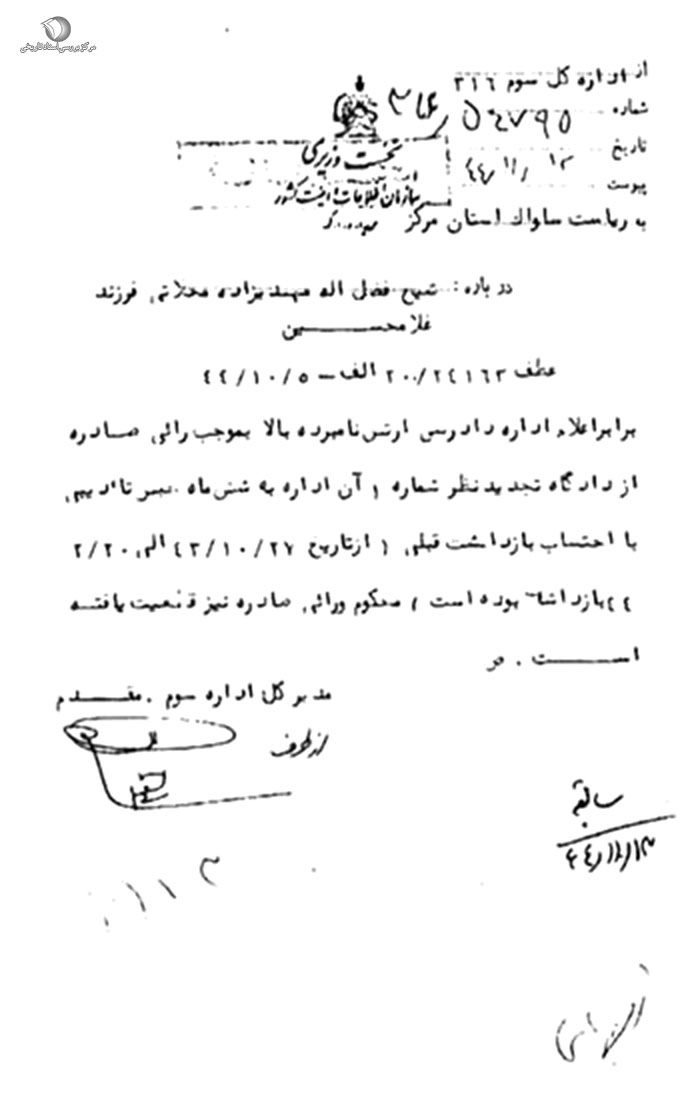 مرکز بررسی اسناد تاریخی
از اداره کل سوم ۳۱۶
شماره
تاریخ ۴۴/۱۱/۱۳
پیوست
نخست وزیری
سازمان اطلاعات و امنیت کشور
به ریاست ساواک استان مرکز
درباره: شیخ فضل اله مهدیزاده محلاتی فرزند
غلامحسین
عطف ۲۰۰/۲۴۱۶۳ الف – ۴۴/۱۰/۵
برابر اعلام اداره دادرسی ارتش نامبرده بالا بموجب رائی صادره
از دادگاه تجدید نظر شماره ۱ آن اداره به شش ماه تادیبی
با احتساب بازداشت قبلی ( از تاریخ ۴۳/۱۰/۲۷ الی ۲/۲۰/
۴۴ بازداشت بوده است ) محکوم ورائی صادره نیز قطعیت یافته
است . مر
مدیر کل اداره سوم . مقدم
از طرف
سابقه
۴۴/۱۱/۱۳